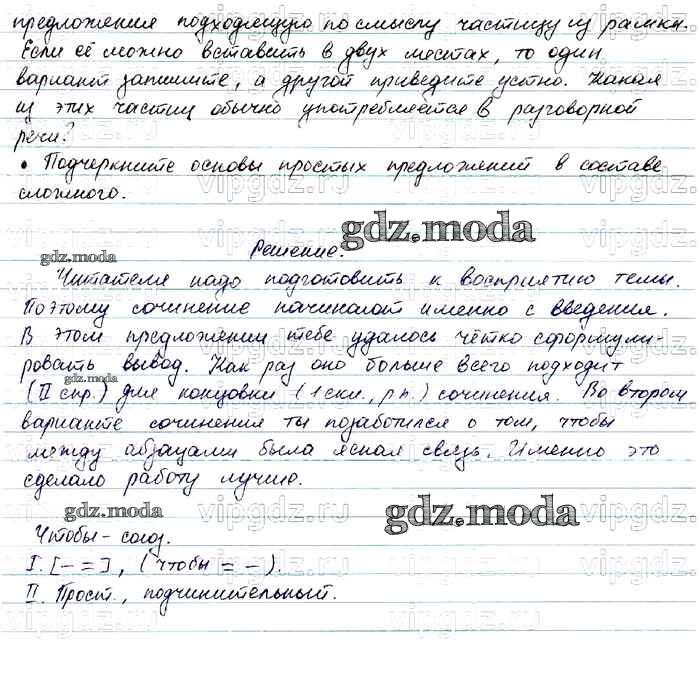 предложения подходящую по смыслу частицу из рамки.
Если её можно вставить в двух местах, то один
вариант запишите, а другой приведите устно. Какая
из этих частиц обычно употребляется в разговорной
речи?
• Подчеркните основы простых предложений в составе
сложного.
gdz.moda
Решение.
gdz.moda
Читателя надо подготовить к восприятию темы.
Поэтому сочинение начинают именно с введения.
В этом предложении тебе удалось чётко сформули-
ровать вывод. Как раз оно больше всего подходит
gdz.moda
(II спр.) для концовки (1 скл., р.п.) сочинения. Во втором
варианте сочинения ты позаботился о том, чтобы
между абзацами была ясная связь. Именно это
сделало работу лучше.
gdz.moda
gdz.moda
Чтобы - союз.
I. [– =], (чтобы = –).
II. Прост., подчинительный.
vipgdz.ru